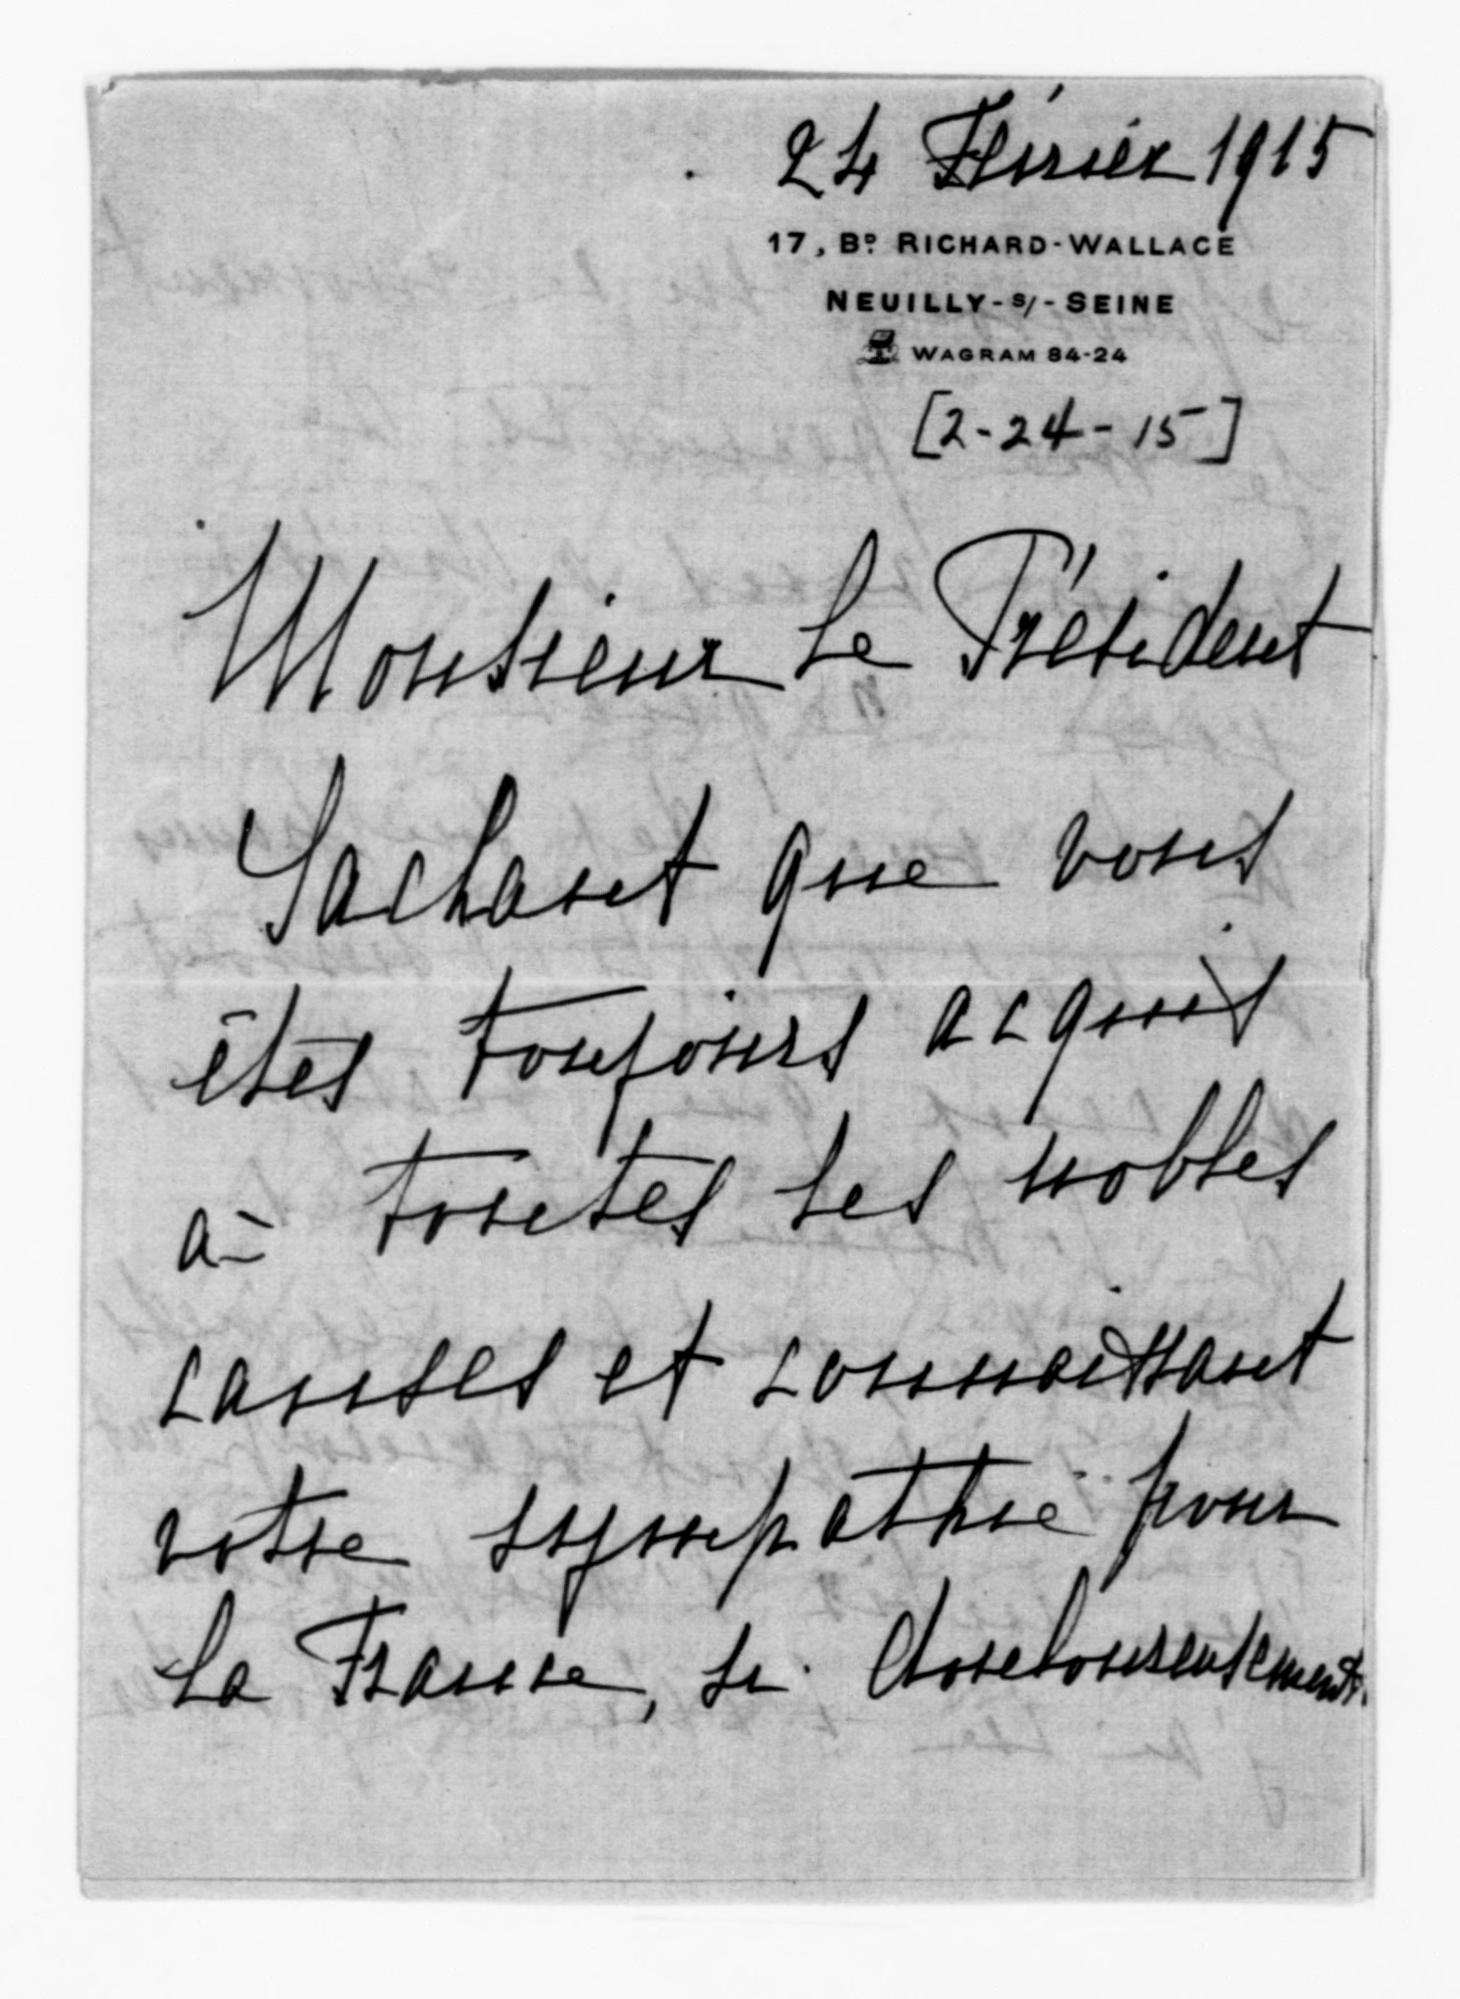 24 Février 1915
17, Bᴅ RICHARD-WALLACE
NEUILLY-S/-SEINE
WAGRAM 84-24
[2-24-15]
Monsieur le Président
Sachant que vous
êtes toujours acquis
à toutes les nobles
causes et connaissant
votre sympathie pour
la France, si douloureusement